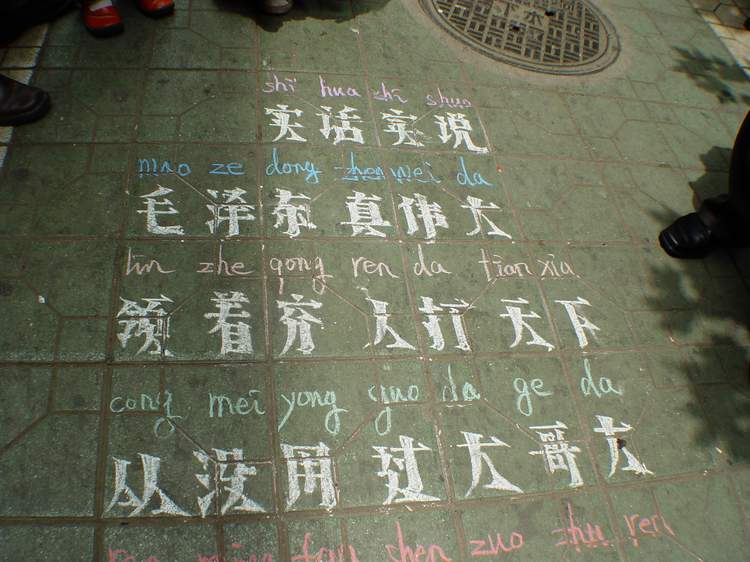 shī hua shī shuo
实话实说
mao ze dong zhen wei da
毛泽东真伟大
lin zhe qong ren da tian xia
领着穷人打天下
cong mei yong guo da ge da
从没用过大哥大
ren min fan shen zuo zhu ren